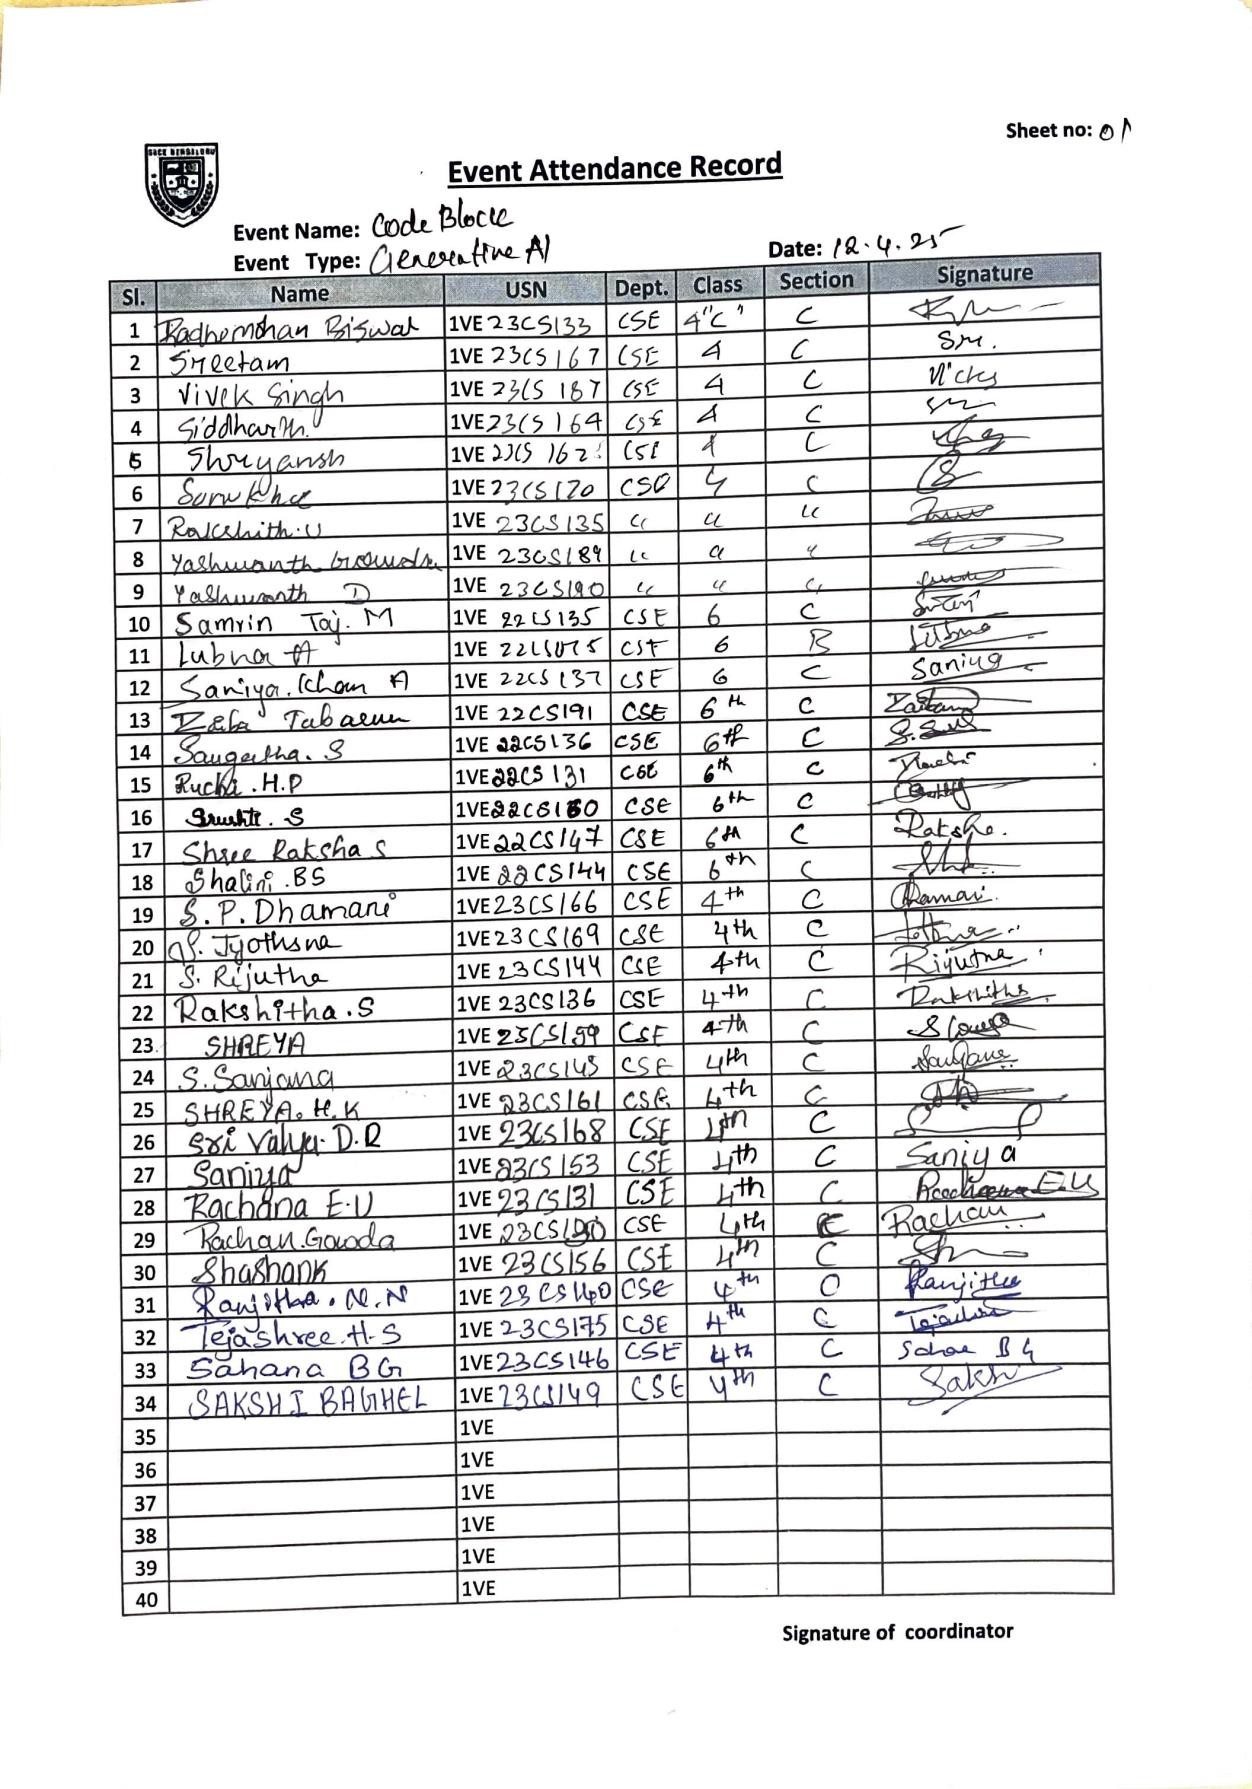 Sheet no: 01
SVCE BENGALURU
Event Attendance Record
Event Name: Code Block
Event Type: Generative AI
Date: 12.4.25
Sl. Name USN Dept. Class Section Signature
1 Radhemohan Biswal 1VE 23CS133 CSE 4"C" C
2 Sreetam 1VE 23CS167 CSE 4 C Sm.
3 Vivek Singh 1VE 23CS187 CSE 4 C Vicky
4 Siddharth. 1VE 23CS164 CSE 4 C
5 Shreyansh 1VE 23CS162 CSE 4 C
6 1VE 23CS170 C
7 Rakshith.U 1VE 23CS135 " " "
8 Yashwanth 1VE 23CS189 " " "
9 Yashwanth D 1VE 23CS190 " " "
10 Samrin Taj. M 1VE 22CS135 CSE 6 C
11 Lubna A 1VE 22CS075 CSE 6 B Lubna
12 Saniya.Khan A 1VE 22CS137 CSE 6 C Saniya
13 Zeba Tabasum 1VE 22CS191 CSE 6th C
14 Sangeetha. S 1VE 22CS136 CSE 6th C
15 Ruchi.H.P 1VE 22CS131 CSE 6th C Ruchi
16 Srushti. S 1VE 22CS160 CSE 6th C
17 Shree Raksha S 1VE 22CS147 CSE 6th C Rakshe.
18 Shalini.BS 1VE 22CS144 CSE 6th C
19 S.P.Dhamani 1VE 23CS166 CSE 4th C Dhamani.
20 S. Jyothsna 1VE 23CS169 CSE 4th C
21 S. Rijutha 1VE 23CS144 CSE 4th C Rijutha
22 Rakshitha.S 1VE 23CS136 CSE 4th C Rakshitha
23. SHREYA 1VE 23CS159 CSE 4th C
24 S.Sanjana 1VE 23CS145 CSE 4th C Sanjana
25 SHREYA.H.K 1VE 23CS161 CSE 4th C
26 Sri Valya.D.R 1VE 23CS168 CSE 4th C
27 Saniya 1VE 23CS153 CSE 4th C Saniya
28 Rachana E.U 1VE 23CS131 CSE 4th C Rachana E U
29 Rachan.Gowda 1VE 23CS130 CSE 4th C Rachan
30 Shashank 1VE 23CS156 CSE 4th C
31 Ranjitha.N.N 1VE 23CS140 CSE 4th C Ranjitha
32 Tejashree.H.S 1VE 23CS175 CSE 4th C
33 Sahana BG 1VE 23CS146 CSE 4th C Sahana B G
34 SAKSHI BAGHEL 1VE 23CS149 CSE 4th C Sakshi
35 1VE
36 1VE
37 1VE
38 1VE
39 1VE
40 1VE
Signature of coordinator